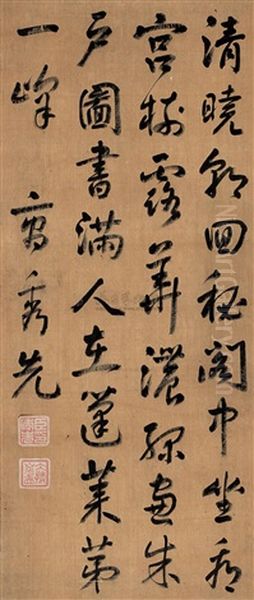 清曉朝回秘閣中坐看
宮樹露華濃綠窗朱
戶圖書滿人在蓬萊第
一峰 曹秀先